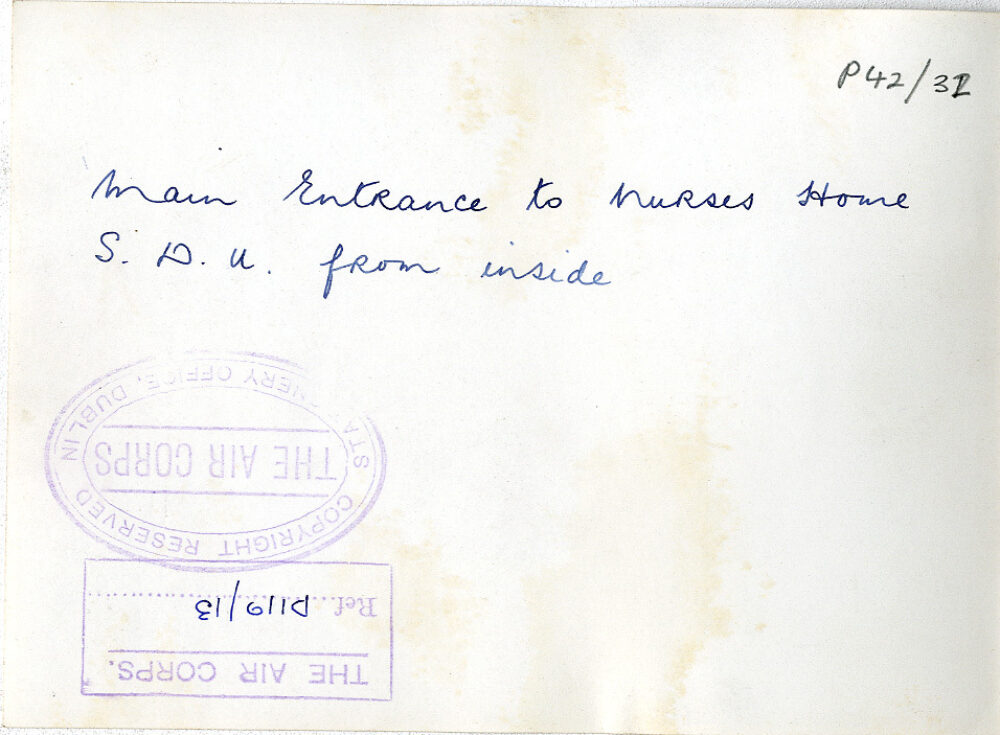 P42/32
Main Entrance to Nurses Home
S. D. U. from inside
COPYRIGHT RESERVED
THE AIR CORPS
STATIONERY OFFICE, DUBLIN
THE AIR CORPS.
Ref. D119/13